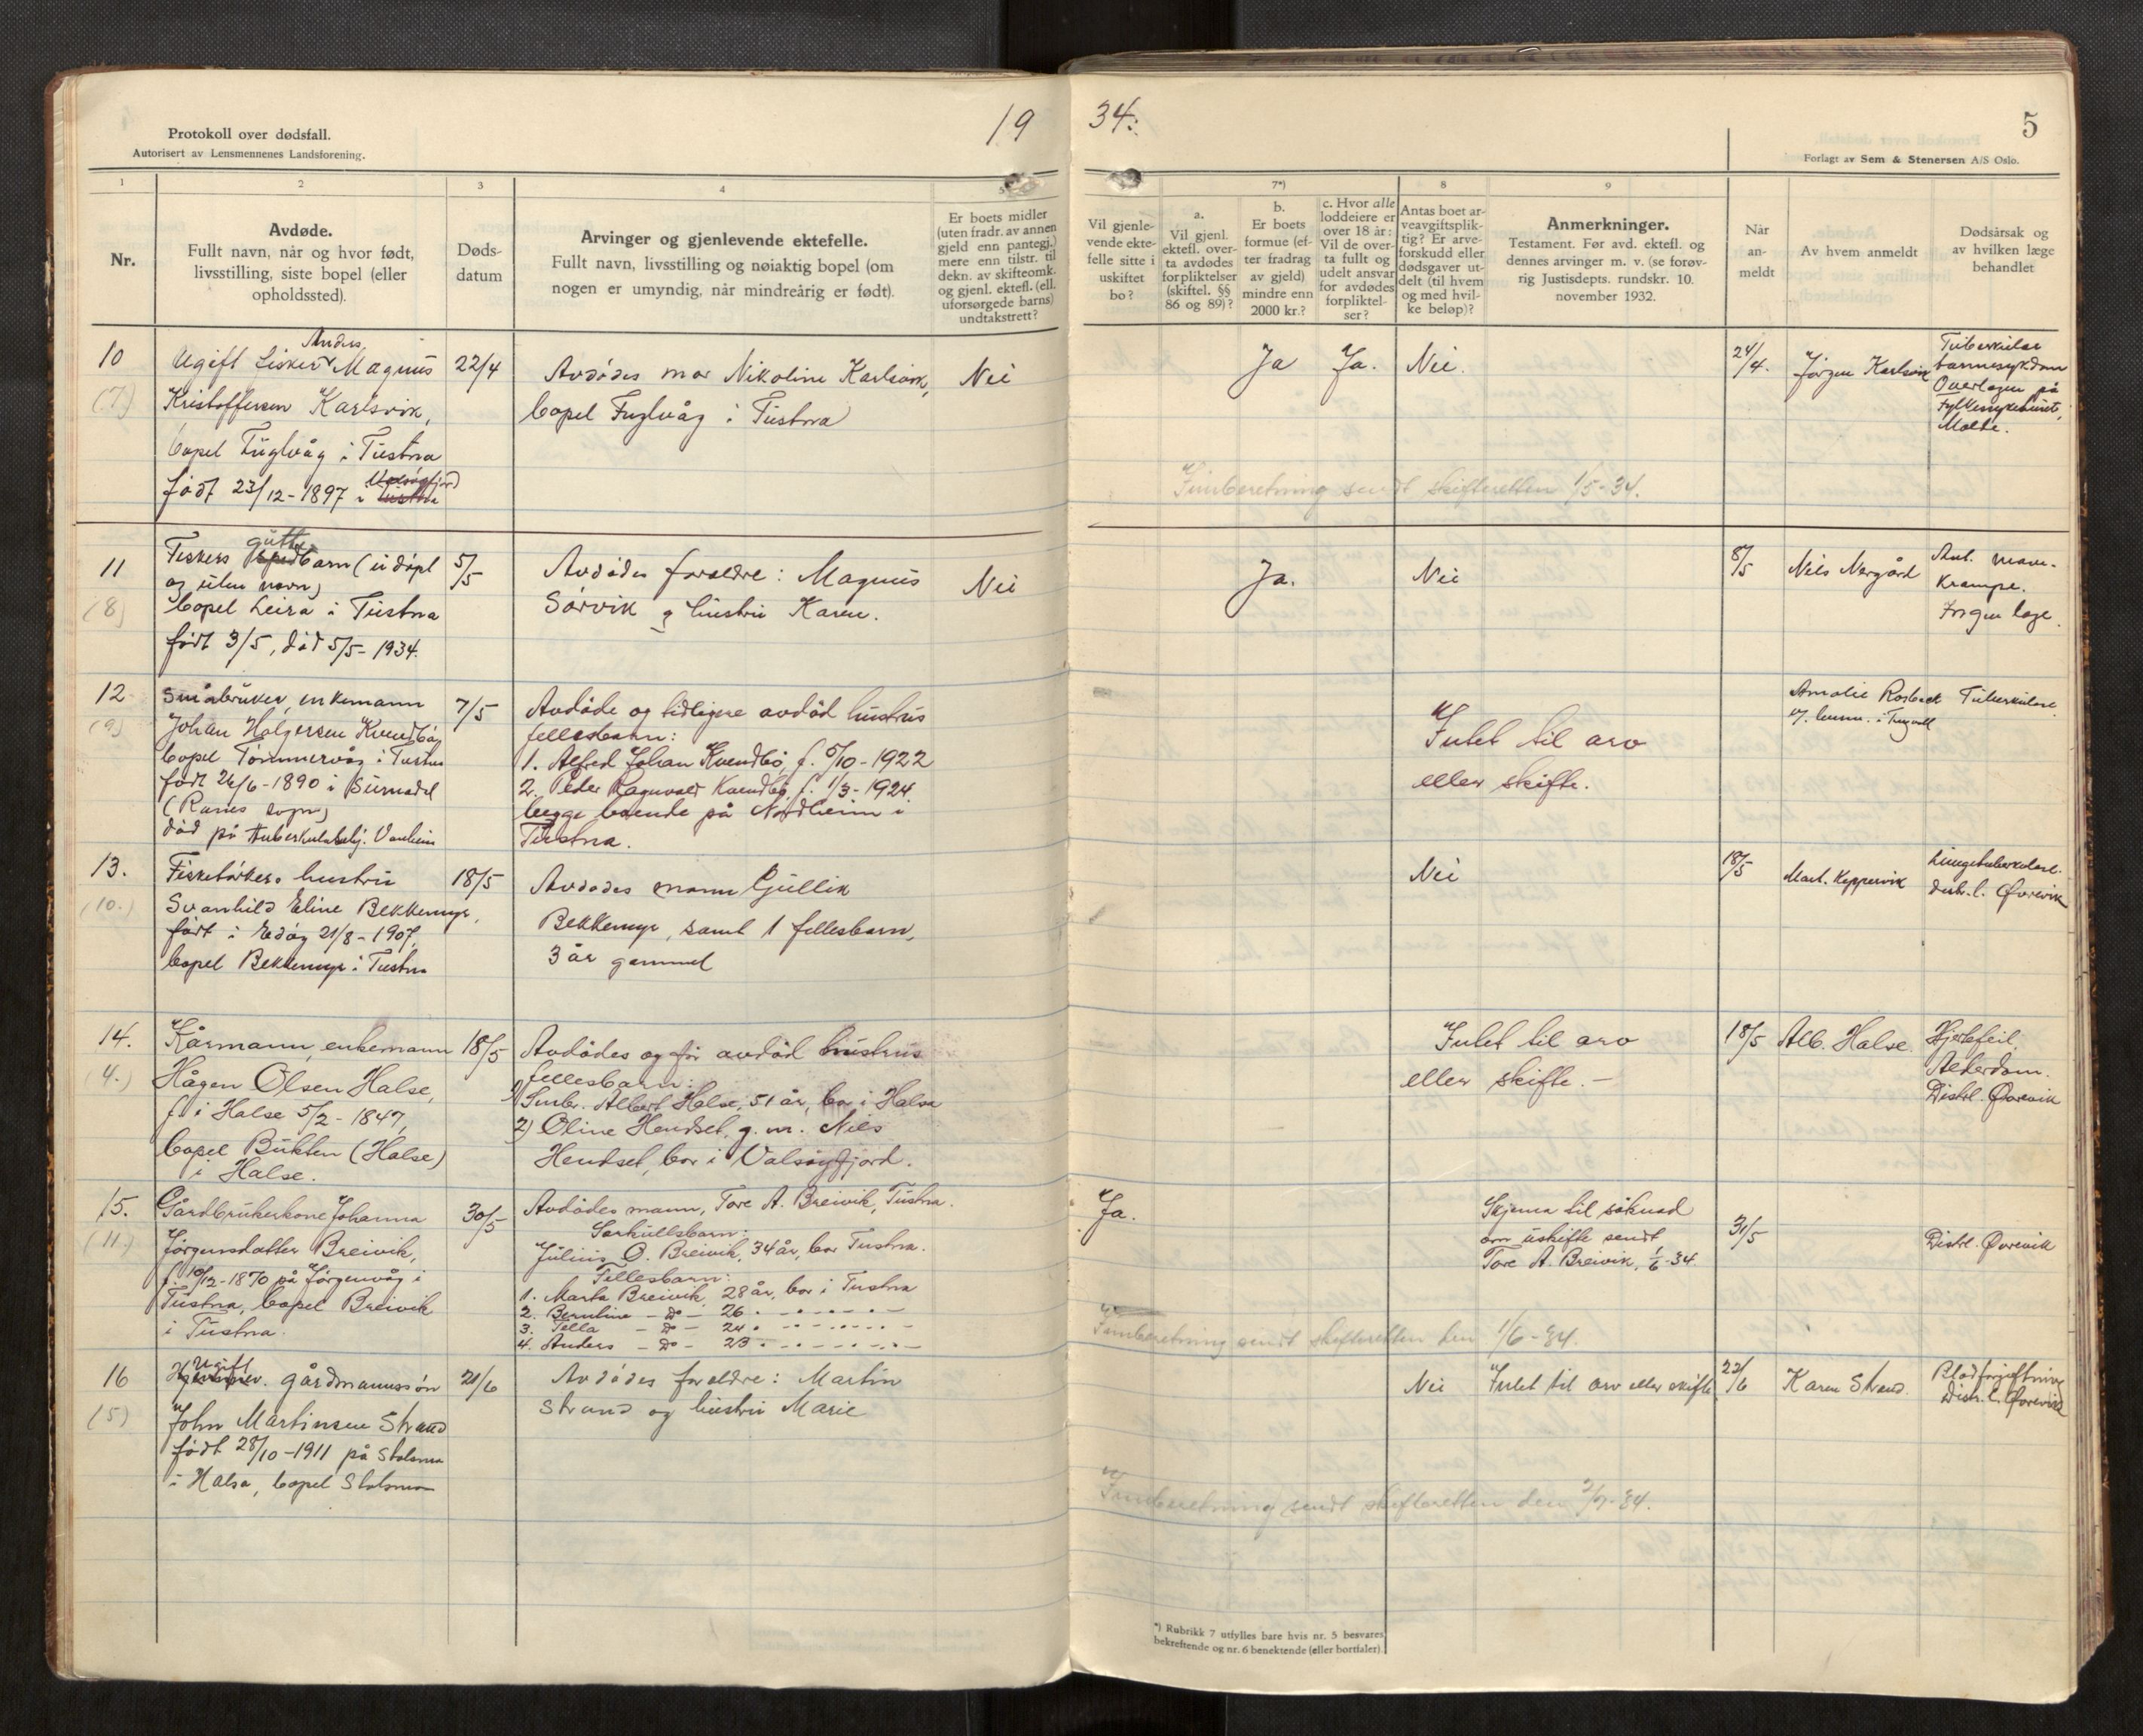 Protokoll over dødsfall.
Autorisert av Lensmennenes Landsforening.
19
34.
5
Forlagt av Sem & Stenersen A/S Oslo.
1
2
3
4
5
7*)
8
9
Nr.
Avdøde.
Fullt navn, når og hvor født,
livsstilling, siste bopel (eller
opholdssted).
Døds-
datum
Arvinger og gjenlevende ektefelle.
Fullt navn, livsstilling og nøiaktig bopel (om
nogen er umyndig, når mindreårig er født).
Er boets midler
(uten fradr. av annen
gjeld enn pantegj.)
mere enn tilstr. til
dekn. av skifteomk.
og gjenl. ektefl. (ell.
uforsørgede barns)
undtakstrett?
Vil gjenle-
vende ekte-
felle sitte i
uskiftet
bo?
a.
Vil gjenl.
ektefl. over-
ta avdødes
forpliktelser
(skiftel. §§
86 og 89)?
b.
Er boets
formue (ef-
ter fradrag
av gjeld)
mindre enn
2000 kr.?
c. Hvor alle
loddeiere er
over 18 år:
Vil de over-
ta fullt og
udelt ansvar
for avdødes
forpliktel-
ser?
Antas boet ar-
veavgiftsplik-
tig? Er arve-
forskudd eller
dødsgaver ut-
delt (til hvem
og med hvil-
ke beløp)?
Anmerkninger.
Testament. Før avd. ektefl. og
dennes arvinger m. v. (se forøv-
rig Justisdepts. rundskr. 10.
november 1932.
Når
an-
meldt
Av hvem anmeldt
Dødsårsak og
av hvilken læge
behandlet
10
(7)
Anders
Ugift fisker Magnus
Kristoffersen Karlsvik,
bopel Fuglvåg i Tustna
født 23/12-1897 i Valsøyfjord
22/4
Avdødes mor Nikoline Karlsvik,
bopel Fuglvåg i Tustna
Nei
Ja
Ja.
Nei.
24/4.
Jørgen Karlsvik
Tuberkuløs
tarmsykdom
Overlegen på
fylkessykehuset,
Molde.
Innberetning sendt skifteretten 1/5-34.
11
(8)
gutte
Fiskers barn (udøpt
og uten navn)
bopel Leira i Tustna
født 3/5, død 5/5-1934.
5/5
Avdødes foreldre: Magnus
Sørvik og hustru Karen.
Nei
Ja.
Nei
8/5
Nils Nergård
Ant. mave-
krampe.
Ingen læge.
12
(9)
Småbruker, enkemann
Johan Halgersen Kvendbø
bopel Tømmervåg i Tustna
født 26/6-1890 i Surnadal
(Ranes sogn)
død på tuberkulosehj. Vonheim
7/5
Avdøde og tidligere avdød hustrus
fellesbarn:
1. Alfred Johan Kvendbø, f. 5/10-1922
2. Peder Ragnvald Kvendbø, f. 1/3-1924
begge boende på Nordheim i
Tustna.
Intet til arv
eller skifte.
Amalie Rosbach
Tuberkulose.
13.
(10.)
Fisketørkers hustru
Svanhild Eline Bekkemyr,
født i Edøy 21/8-1907,
bopel Bekkemyr i Tustna
18/5
Avdødes mann Gullik
Bekkemyr, samt 1 fellesbarn,
3 år gammel
Nei
18/5
Mart. Keppervik
Lungetuberkulose.
distr.l. Øvrevik
14.
(4.)
Kårmann, enkemann
Hågen Olsen Halse,
f. i Halse 5/2-1847,
bopel Bukten (Halse)
i Halse.
18/5
Avdødes og før avdød hustrus
fellesbarn:
1) Smbr. Albert Halse, 51 år, bor i Halsa
2) Oline Hendset, g. m. Nils
Hendset, bor i Valsøyfjord.
Intet til arv
eller skifte.-
18/5
Alb. Halse.
Hjertefeil.
Alderdom.
Distrl. Øvrevik
15.
(11.)
Gårdbrukerkone Johanna
Jørgensdatter Breivik,
f. 10/12-1870 på Jørgenvåg i
Tustna, bopel Breivik
i Tustna.
30/5
Avdødes mann, Tore A. Breivik, Tustna.
Særkullsbarn:
Julius O. Breivik, 34 år, bor Tustna.
Fellesbarn:
1. Marta Breivik, 28 år, bor i Tustna
2. Bernline - do - 26 . - . - . - . -
3. Tella - do - 24 . - . - . - . -
4. Anders - do - 23 . - . - . - . -
Ja.
Skjema til søknad
om uskifte sendt
Tore A. Breivik, 1/6-34.
31/5
Distrl. Øvrevik
Innberetning sendt skifteretten den 1/6-34.
16
(5)
Ugift
gårdmannssøn
John Martinsen Strand
født 28/10-1911 på Stolsmo
i Halsa, bopel Stolsmo
21/6
Avdødes foreldre: Martin
Strand og hustru Marie
Nei
Intet til arv eller skifte.
22/6
Karen Strand.
Blodforgiftning
Distr.l. Øvrevik
Innberetning sendt skifteretten den 2/7-34.
*) Rubrikk 7 utfylles bare hvis nr. 5 besvares
bekreftende og nr. 6 benektende (eller bortfaler).